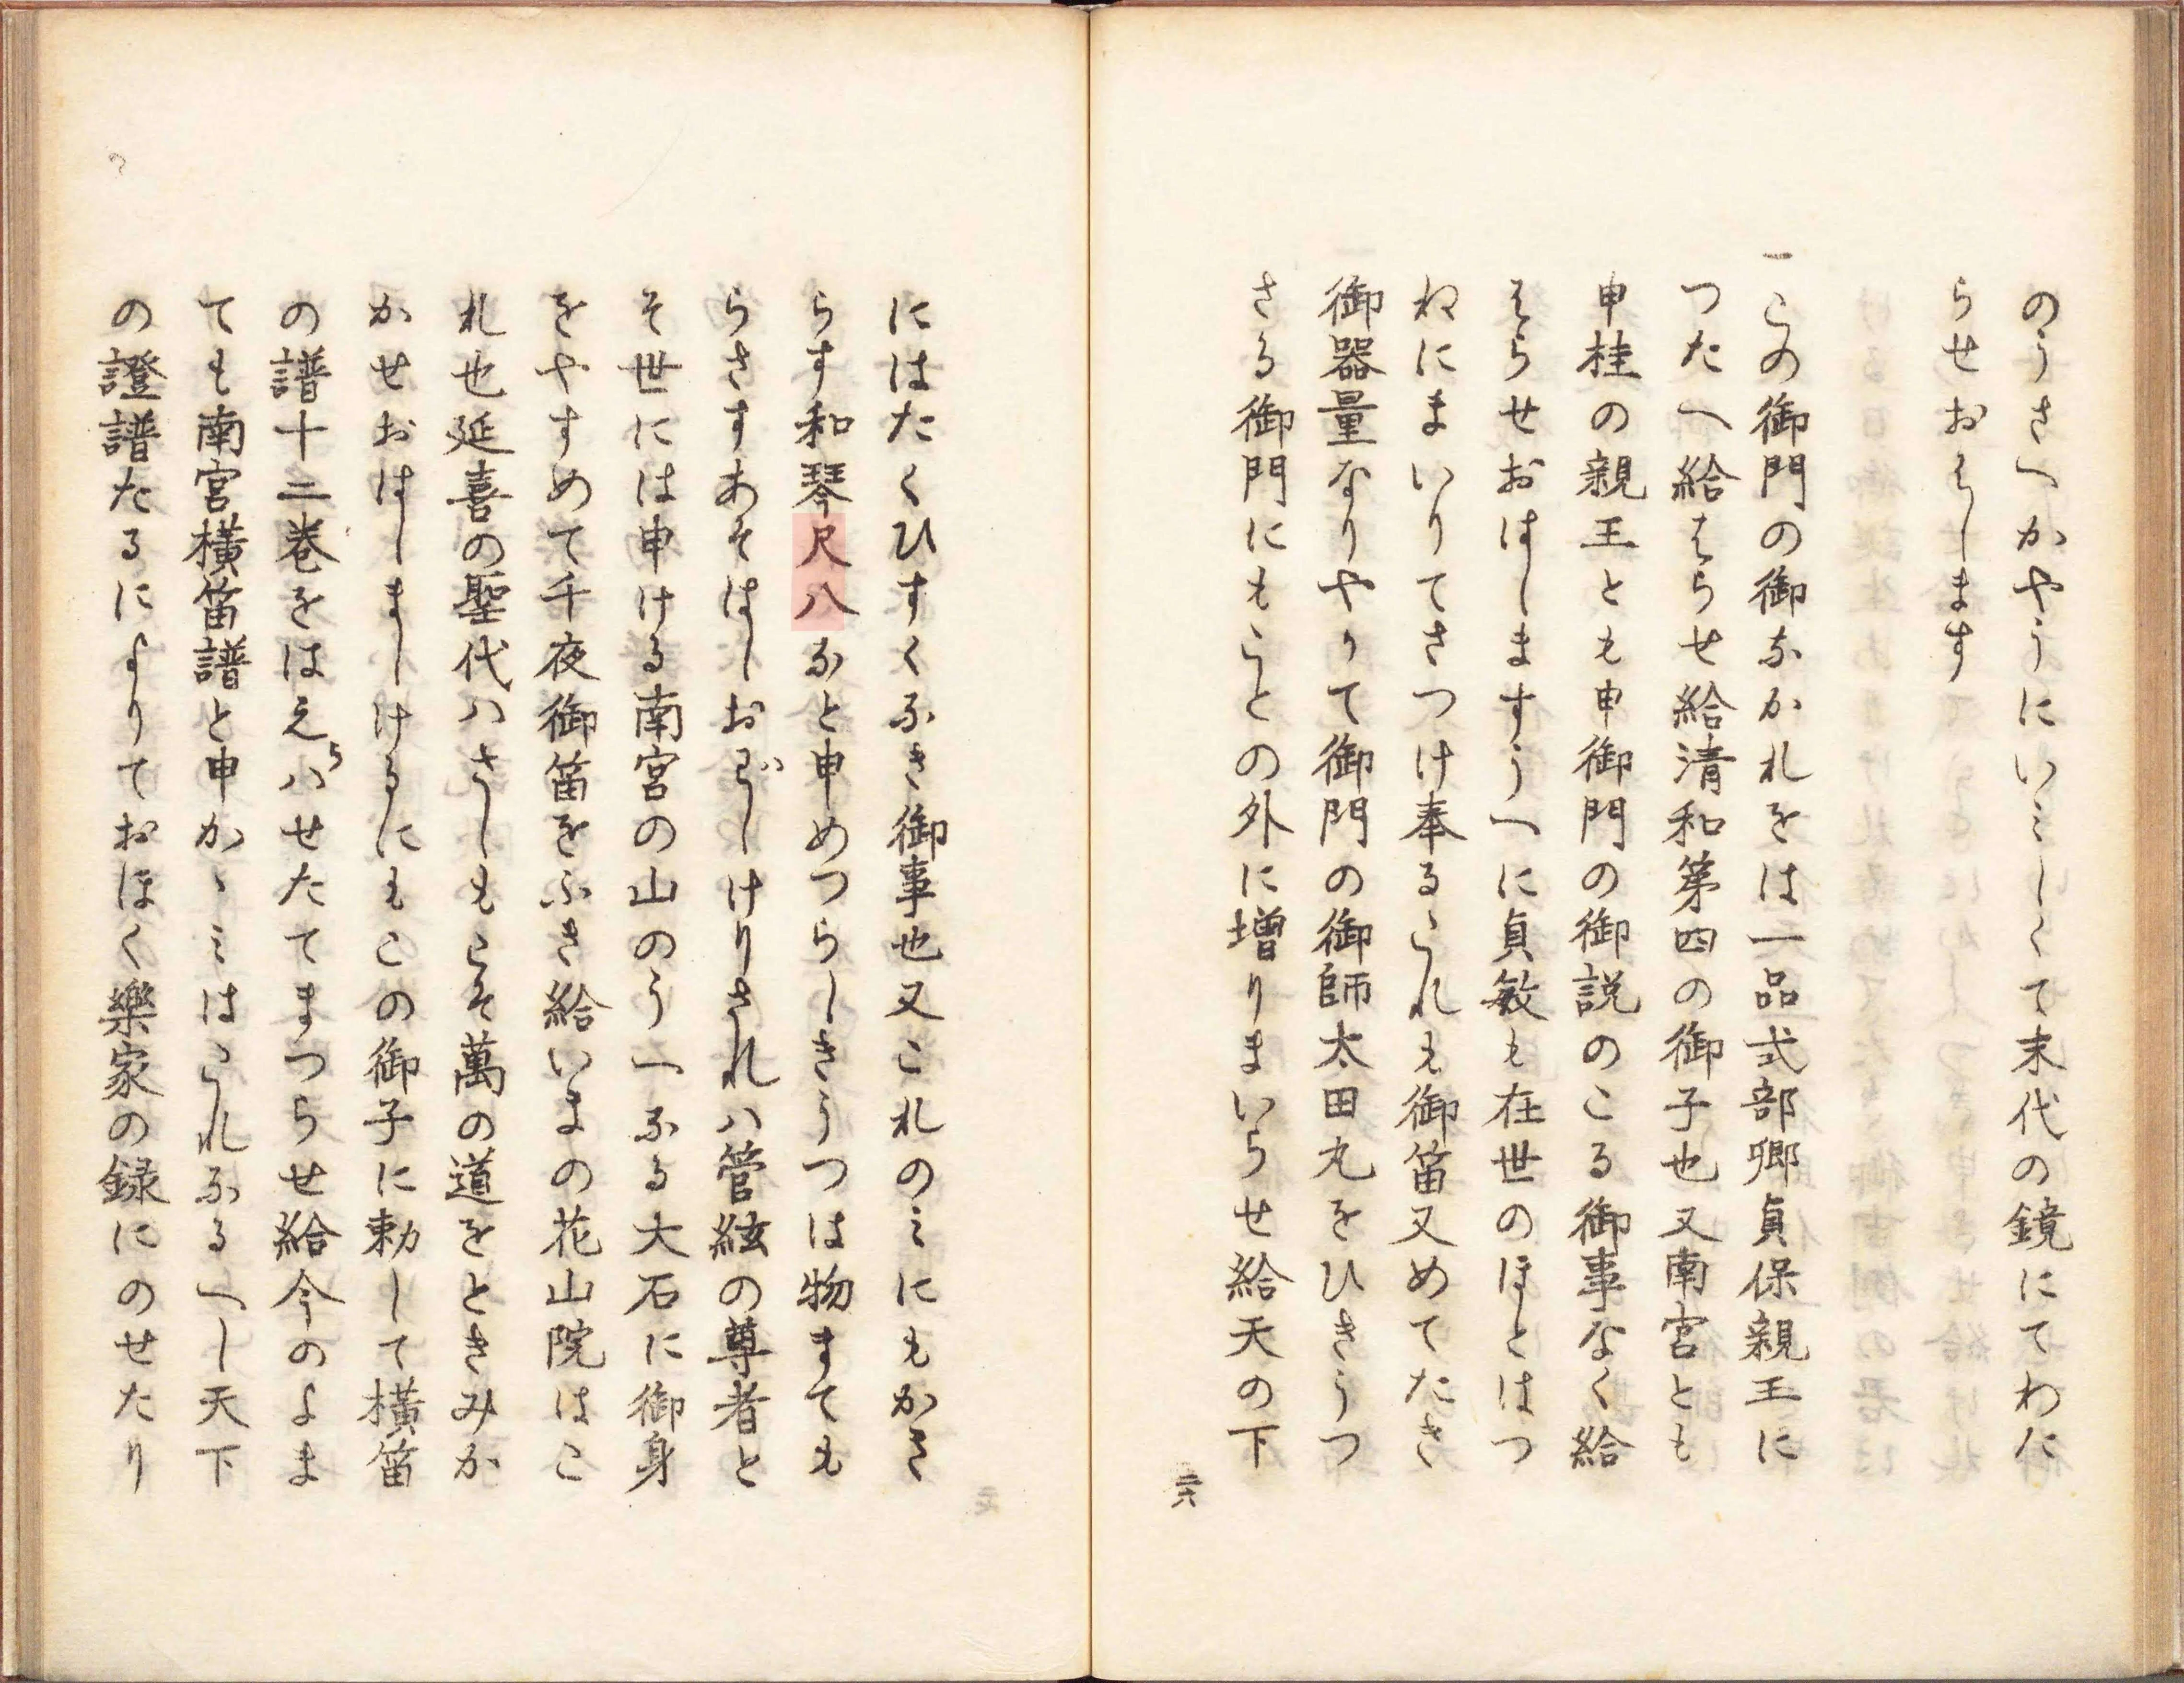 のうさへかやうにいみしくて末代の鏡にてわた
らせおはします
一この御門の御なかれをは一品式部卿貞保親王に
つたへ給はらせ給清和第四の御子也又南宮とも
申桂の親王とも申御門の御説のこる御事なく給
はらせおはしますうへに貞敏も在世のほとはつ
ねにまいりてさつけ奉るこれも御笛又めてたき
御器量なりやかて御門の御師太田丸をひきうつ
さる御門にもことの外に増りまいらせ給天の下
二六
にはたくひすくなき御事也又これのみにもかき
らす和琴尺八なと申めつらしきうつは物まても
らさすあそはしおはしけりされハ管絃の尊者と
そ世には申ける南宮の山のうへなる大石に御身
をやすめて千夜御笛をふき給いまの花山院はこ
れ也延喜の聖代ハさしもこそ萬の道をときみか
かせおはしましけるにもこの御子に勅して横笛
の譜十二巻をはえらハせたてまつらせ給今のよま
ても南宮横笛譜と申かゝみはこれなるへし天下
の證譜たるによりておほく樂家の録にのせたり